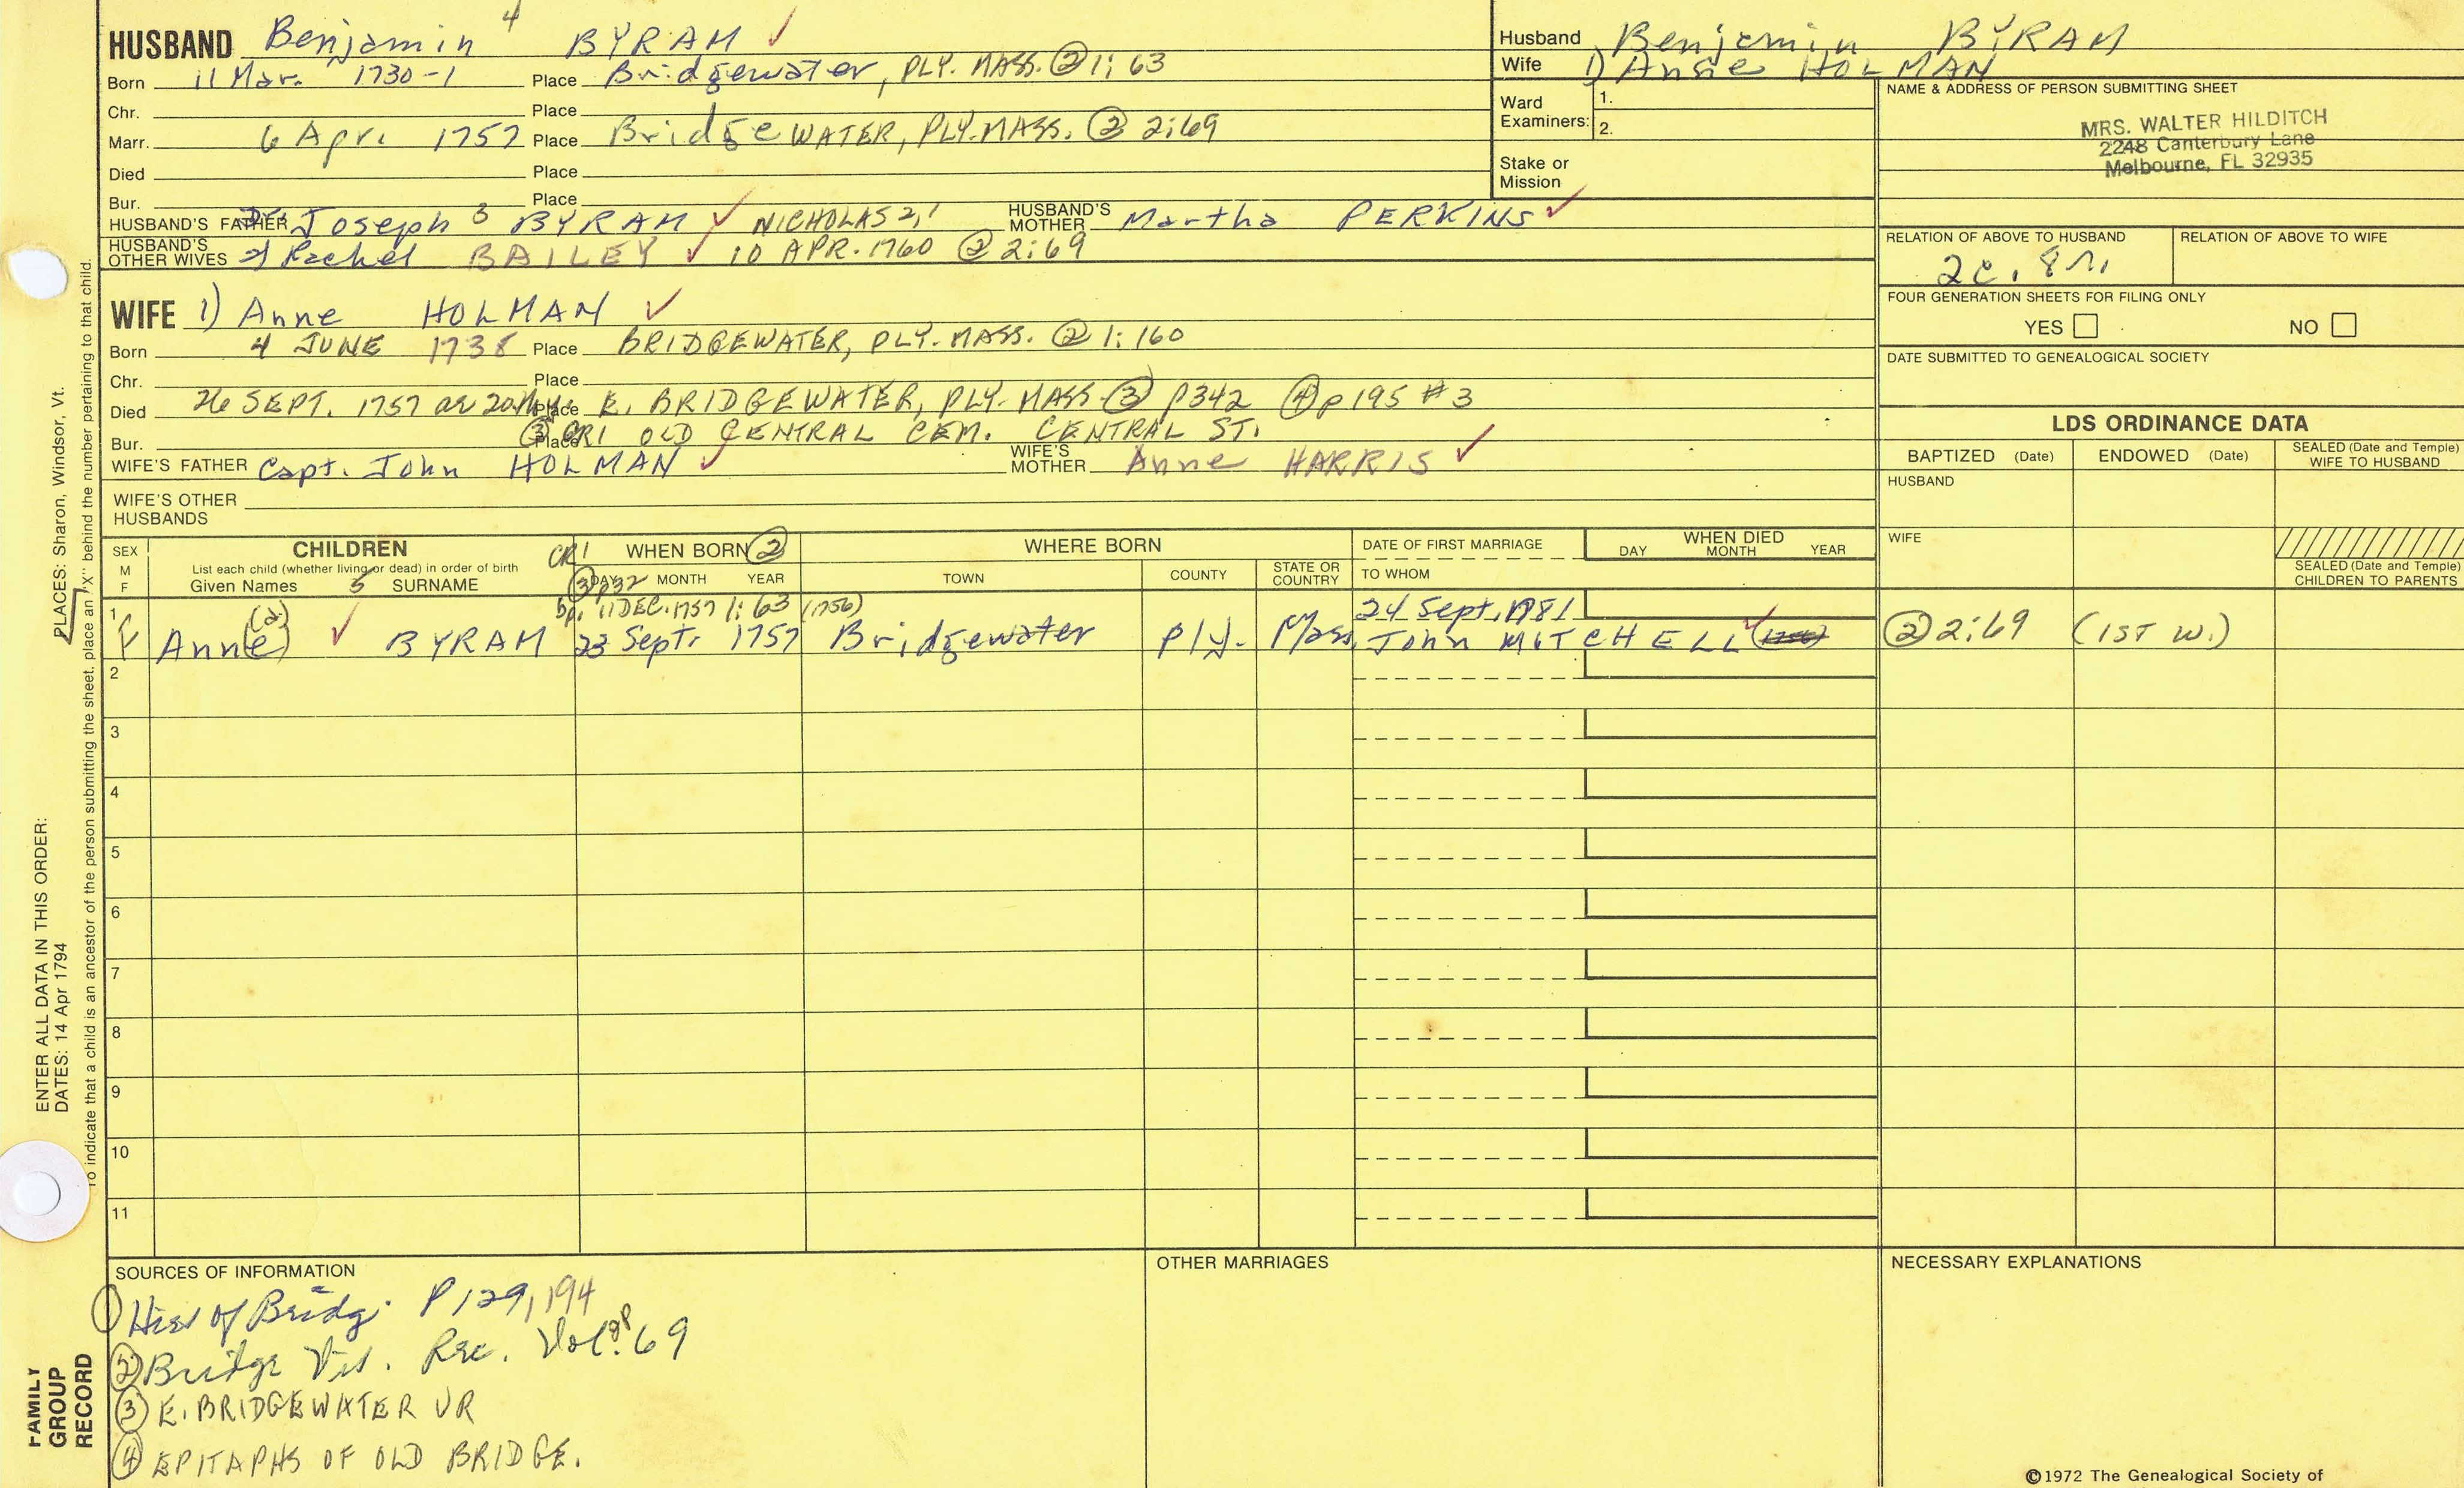 HUSBAND Benjamin 4 BYRAM ✓
Born 11 Mar. 1730-1 Place Bridgewater, PLY. MASS. ② 1:63
Chr. Place
Marr. 6 Apr. 1757 Place BridgeWATER, PLY. MASS. ② 2:69
Died Place
Bur. Place
HUSBAND'S FATHER Dr. Joseph 3 BYRAM ✓ NICHOLAS 2,1 HUSBAND'S MOTHER Martha PERKINS ✓
HUSBAND'S OTHER WIVES 2) Rachel BAILEY ✓ 10 APR. 1760 ② 2:69
WIFE 1) Anne HOLMAN ✓
Born 4 JUNE 1738 Place BRIDGEWATER, PLY. MASS. ② 1:160
Chr. Place
Died 26 SEPT. 1757 ae 20 Place E. BRIDGEWATER, PLY. MASS ③ p342 ④ p195 #3
Bur. Place ③ GR1 OLD CENTRAL CEM. CENTRAL ST.
WIFE'S FATHER Capt. John HOLMAN ✓ WIFE'S MOTHER Anne HARRIS ✓
WIFE'S OTHER HUSBANDS
Husband Benjamin BYRAM
Wife 1) Anne HOLMAN
Ward Examiners: 1.
2.
Stake or Mission
NAME & ADDRESS OF PERSON SUBMITTING SHEET
MRS. WALTER HILDITCH
2248 Canterbury Lane
Melbourne, FL 32935
RELATION OF ABOVE TO HUSBAND RELATION OF ABOVE TO WIFE
2c. 8r.
FOUR GENERATION SHEETS FOR FILING ONLY
YES NO
DATE SUBMITTED TO GENEALOGICAL SOCIETY
LDS ORDINANCE DATA
BAPTIZED (Date) ENDOWED (Date) SEALED (Date and Temple) WIFE TO HUSBAND
HUSBAND
WIFE
SEALED (Date and Temple) CHILDREN TO PARENTS
SEX M F
CHILDREN
List each child (whether living or dead) in order of birth
Given Names 5 SURNAME
CR1 WHEN BORN ②
③ p32 DAY MONTH YEAR
WHERE BORN
TOWN COUNTY STATE OR COUNTRY
DATE OF FIRST MARRIAGE
TO WHOM
WHEN DIED
DAY MONTH YEAR
bp. 11 DEC. 1757 1:63 (1756) 24 Sept, 1781
1 F Anne (a) ✓ BYRAM 23 Sept. 1757 Bridgewater Ply. Mass. John MITCHELL ✓ (1756) ② 2:69 (1ST W.)
2
3
4
5
6
7
8
9
10
11
SOURCES OF INFORMATION
① Hist of Bridg. P 129, 194
② Bridge Vit. Rec. Vol. 2 P 69
③ E. BRIDGEWATER VR
④ EPITAPHS OF OLD BRIDGE.
OTHER MARRIAGES
NECESSARY EXPLANATIONS
©1972 The Genealogical Society of
ENTER ALL DATA IN THIS ORDER:
DATES: 14 Apr 1794
PLACES: Sharon, Windsor, Vt.
To indicate that a child is an ancestor of the person submitting the sheet, place an "X" behind the number pertaining to that child.
FAMILY GROUP RECORD